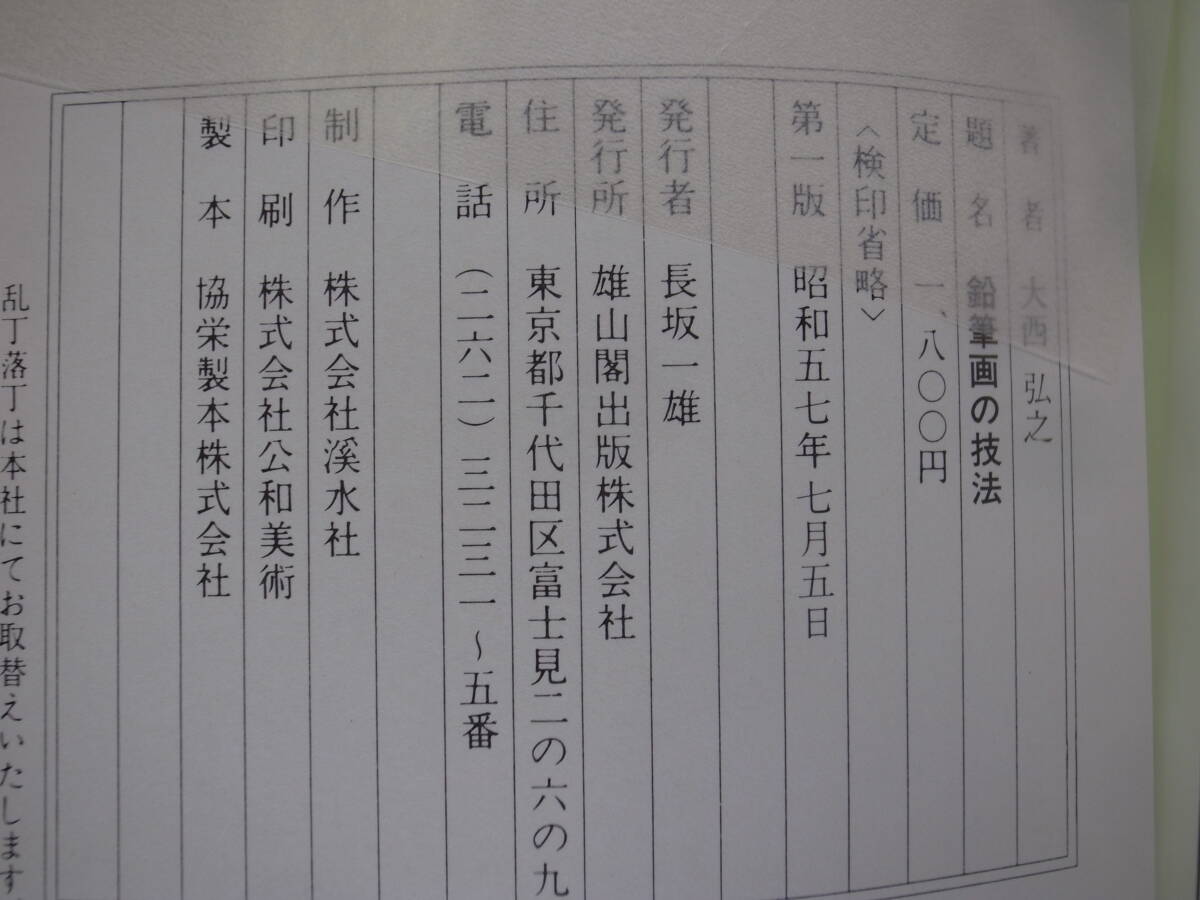 著者 大西 弘之
題名 鉛筆画の技法
定価 一、八〇〇円
〈検印省略〉
第一版 昭和五七年七月五日
発行者 長坂一雄
発行所 雄山閣出版株式会社
住所 東京都千代田区富士見二の六の九
電話 (二六二)三二三一~五番
制作 株式会社溪水社
印刷 株式会社公和美術
製本 協栄製本株式会社
乱丁落丁は本社にてお取替えいたします